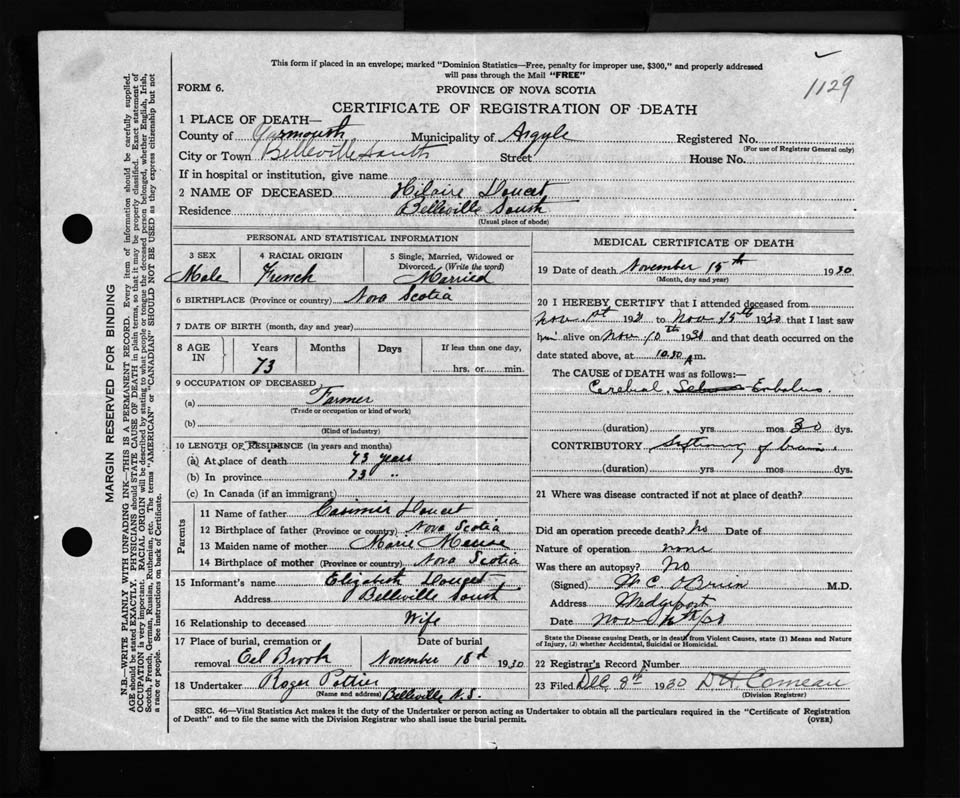 This form if placed in an envelope, marked "Dominion Statistics—Free, penalty for improper use, $300," and properly addressed
will pass through the Mail "FREE"
1129
FORM 6.
PROVINCE OF NOVA SCOTIA
CERTIFICATE OF REGISTRATION OF DEATH
1 PLACE OF DEATH—
County of Yarmouth Municipality of Argyle Registered No.
(For use of Registrar General only)
City or Town Belleville South Street House No.
If in hospital or institution, give name
2 NAME OF DECEASED Hilaire Doucet
Residence Belleville South
(Usual place of abode)
PERSONAL AND STATISTICAL INFORMATION
3 SEX 4 RACIAL ORIGIN 5 Single, Married, Widowed or
Divorced. (Write the word)
Male French Married
6 BIRTHPLACE (Province or country) Nova Scotia
7 DATE OF BIRTH (month, day and year)
8 AGE IN Years Months Days If less than one day,
73 hrs. or min.
9 OCCUPATION OF DECEASED
(a) Farmer
(Trade or occupation or kind of work)
(b)
(Kind of industry)
10 LENGTH OF RESIDENCE (in years and months)
(a) At place of death 73 years
(b) In province 73 "
(c) In Canada (if an immigrant)
Parents
11 Name of father Casimir Doucet
12 Birthplace of father (Province or country) Nova Scotia
13 Maiden name of mother Marie
14 Birthplace of mother (Province or country) Nova Scotia
15 Informant's name Elizabeth Doucet
Address Belleville South
16 Relationship to deceased Wife
17 Place of burial, cremation or Date of burial
removal Eel Brook November 18th 1930
18 Undertaker Roger Pottier
(Name and address) Belleville N.S.
MEDICAL CERTIFICATE OF DEATH
19 Date of death November 15th 1930
(Month, day and year)
20 I HEREBY CERTIFY that I attended deceased from
Nov. 1st 1930 to Nov 15th 1930 that I last saw
him alive on Nov 10th 1930 and that death occurred on the
date stated above, at 10.30 A m.
The CAUSE OF DEATH was as follows:—
Cerebral Embolus
(duration) yrs. mos 30 dys.
CONTRIBUTORY Softening of brain
(duration) yrs. mos. dys.
21 Where was disease contracted if not at place of death?
Did an operation precede death? No Date of
Nature of operation none
Was there an autopsy? No
(Signed) M. C. O'Brien M.D.
Address Wedgeport
Date Nov
State the Disease causing Death, or in death from Violent Causes, state (1) Means and Nature
of Injury, (2) whether Accidental, Suicidal or Homicidal.
22 Registrar's Record Number
23 Filed Dec 8th 1930 D H Comeau
(Division Registrar)
SEC. 46—Vital Statistics Act makes it the duty of the Undertaker or person acting as Undertaker to obtain all the particulars required in the "Certificate of Registration
of Death" and to file the same with the Division Registrar who shall issue the burial permit.
(OVER)
MARGIN RESERVED FOR BINDING
N.B.—WRITE PLAINLY WITH UNFADING INK—THIS IS A PERMANENT RECORD. Every item of information should be carefully supplied.
AGE should be stated EXACTLY. PHYSICIANS should STATE CAUSE OF DEATH in plain terms, so that it may be properly classified. Exact statement of
OCCUPATION is very important. RACIAL ORIGIN will be described by stating to what people or tongue the deceased person belonged, whether English, Irish,
Scotch, French, German, Russian, Ruthenian, etc. The terms "AMERICAN" or "CANADIAN" SHOULD NOT BE USED as they express citizenship but not
a race or people. See instructions on back of Certificate.